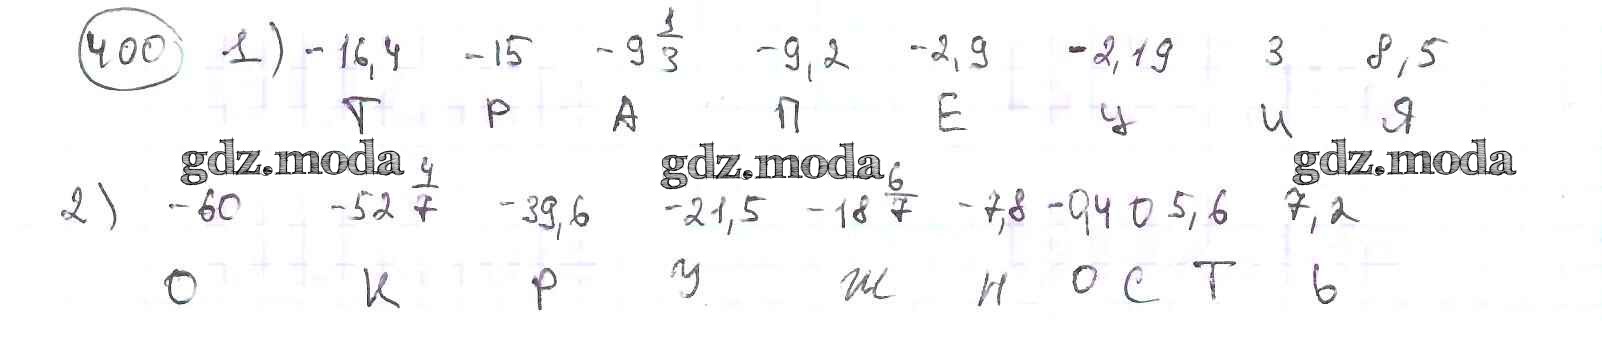 400 1) -16,4 -15 -9 1/3 -9,2 -2,9 -2,19 3 8,5
Т Р А П Е Ц И Я
gdz.moda gdz.moda gdz.moda
2) -60 -52 4/7 -39,6 -21,5 -18 6/7 -7,8 -0,4 0 5,6 7,2
О К Р У Ж Н О С Т Ь